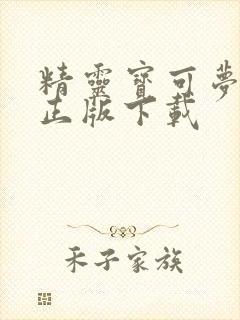 精靈寶可夢
正版下載
禾子家族